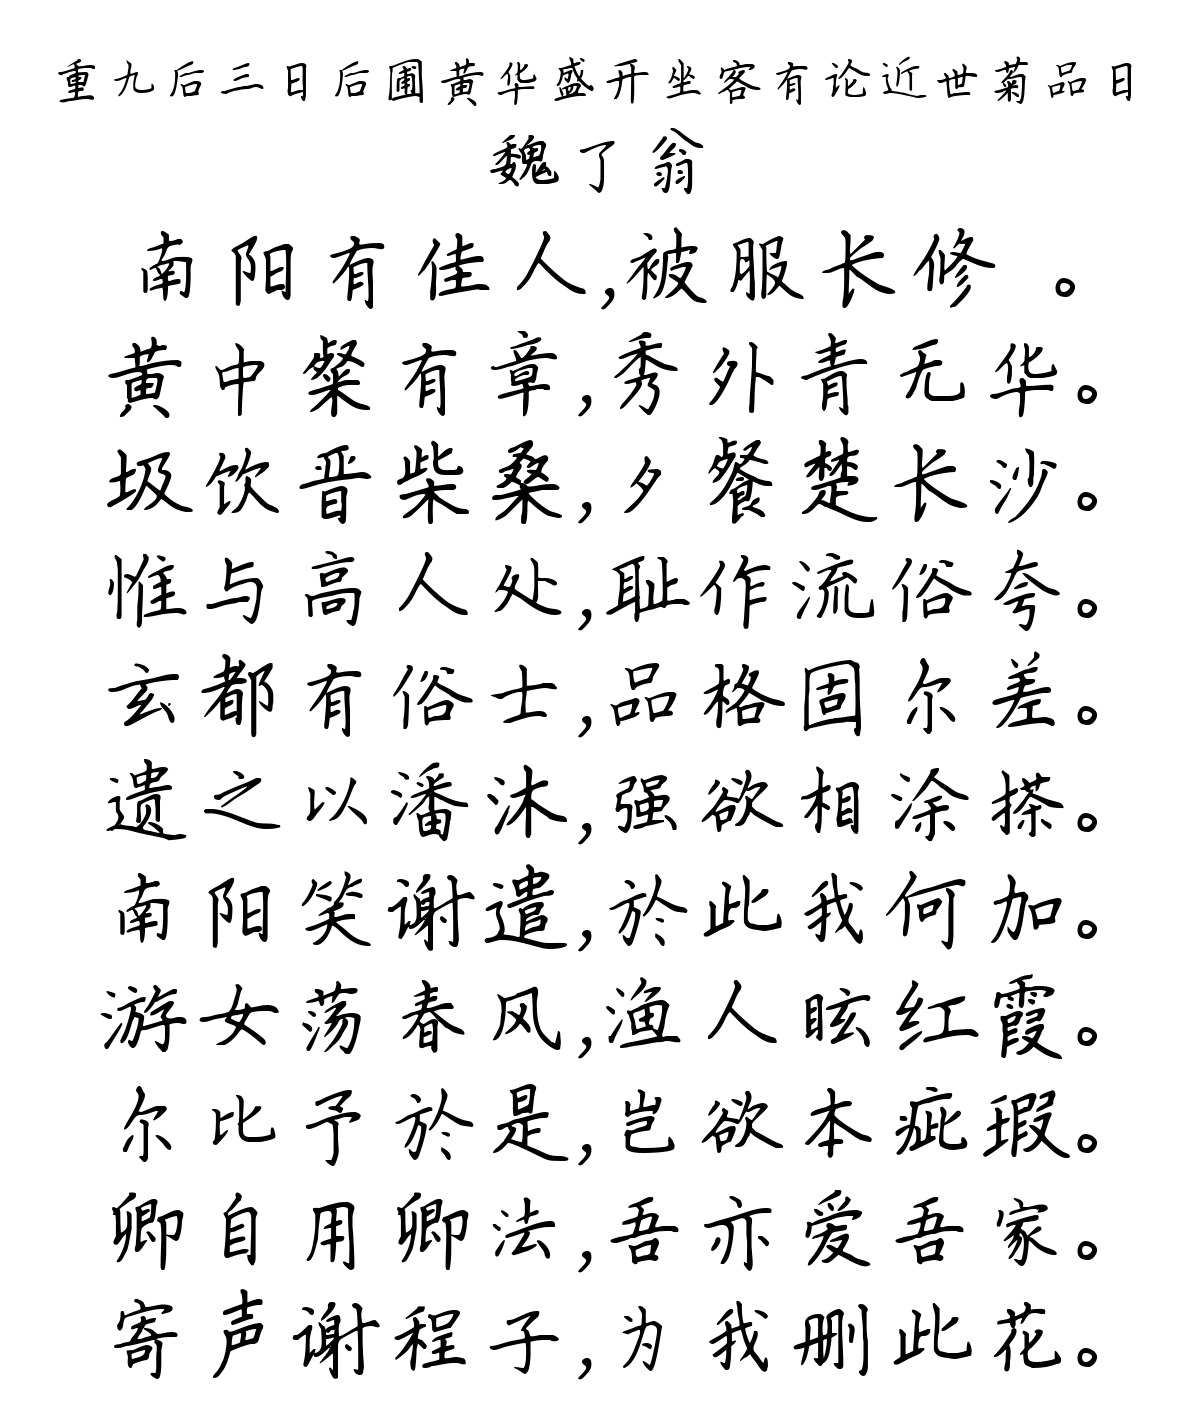 重九后三日后圃黄华盛开坐客有论近世菊品日
魏了翁
南阳有佳人,被服长修 。
黄中粲有章,秀外青无华。
圾饮晋柴桑,夕餐楚长沙。
惟与高人处,耻作流俗夸。
玄都有俗士,品格固尔差。
遗之以潘沐,强欲相涂搽。
南阳笑谢遣,於此我何加。
游女荡春风,渔人眩红霞。
尔比予於是,岂欲本疵瑕。
卿自用卿法,吾亦爱吾家。
寄声谢程子,为我删此花。